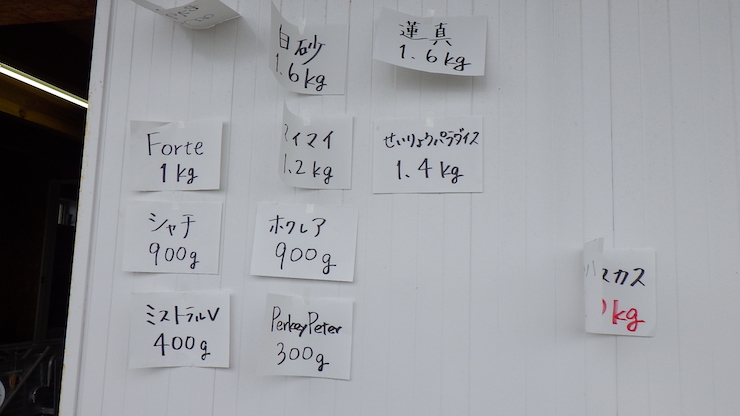 白砂
1.6kg
蓮真
1.6kg
Forte
1kg
マイマイ
1.2kg
せいりょうパラダイス
1.4kg
シャチ
900g
ホクレア
900g
スカス
kg
ミストラルV
400g
PerkeyPeter
300g